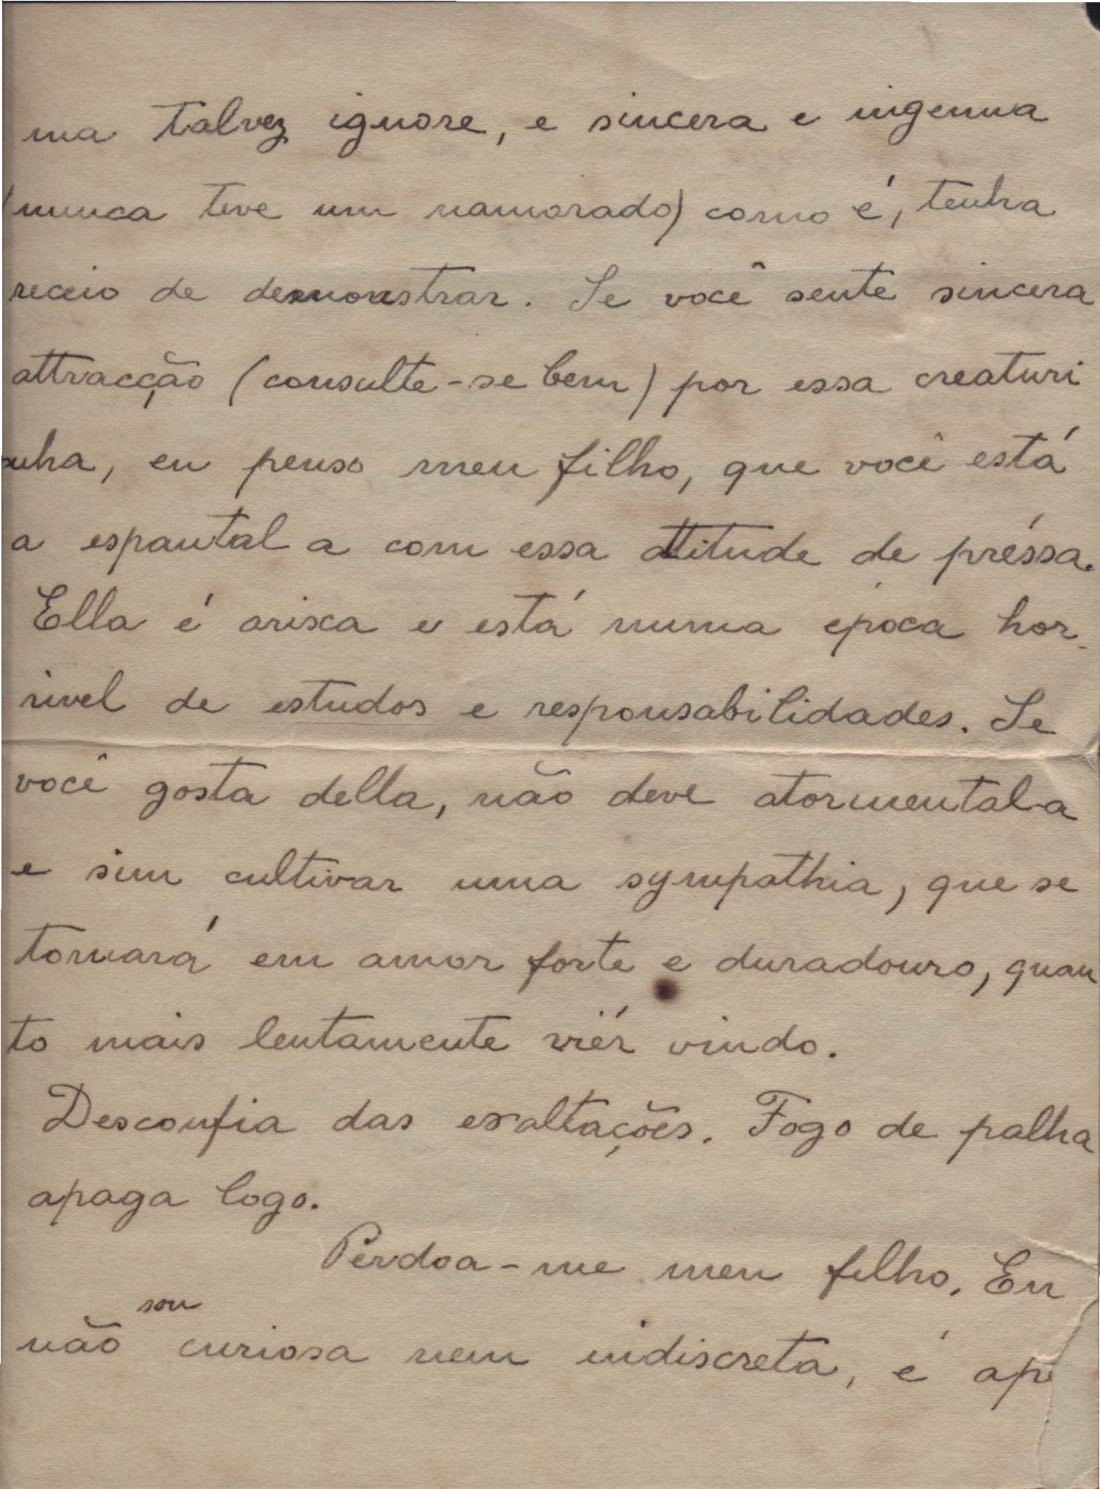 ma talvez ignore, e sincera e ingenua
(nunca teve um namorado) como é, tenha
receio de demonstrar. Se você sente sincera
attracção (consulte-se bem) por essa creaturi
nha, eu penso meu filho, que você está
a espantal a com essa attitude de préssa.
Ella é arisca e está numa época hor-
rivel de estudos e responsabilidades. Se
você gosta della, não deve atormental-a
e sim cultivar uma sympathia, que se
tornará em amor forte e duradouro, quan
to mais lentamente viér vindo.
Desconfia das exaltações. Fogo de palha
apaga logo.
Perdoa-me meu filho. Eu
não sou curiosa nem indiscreta, é ap